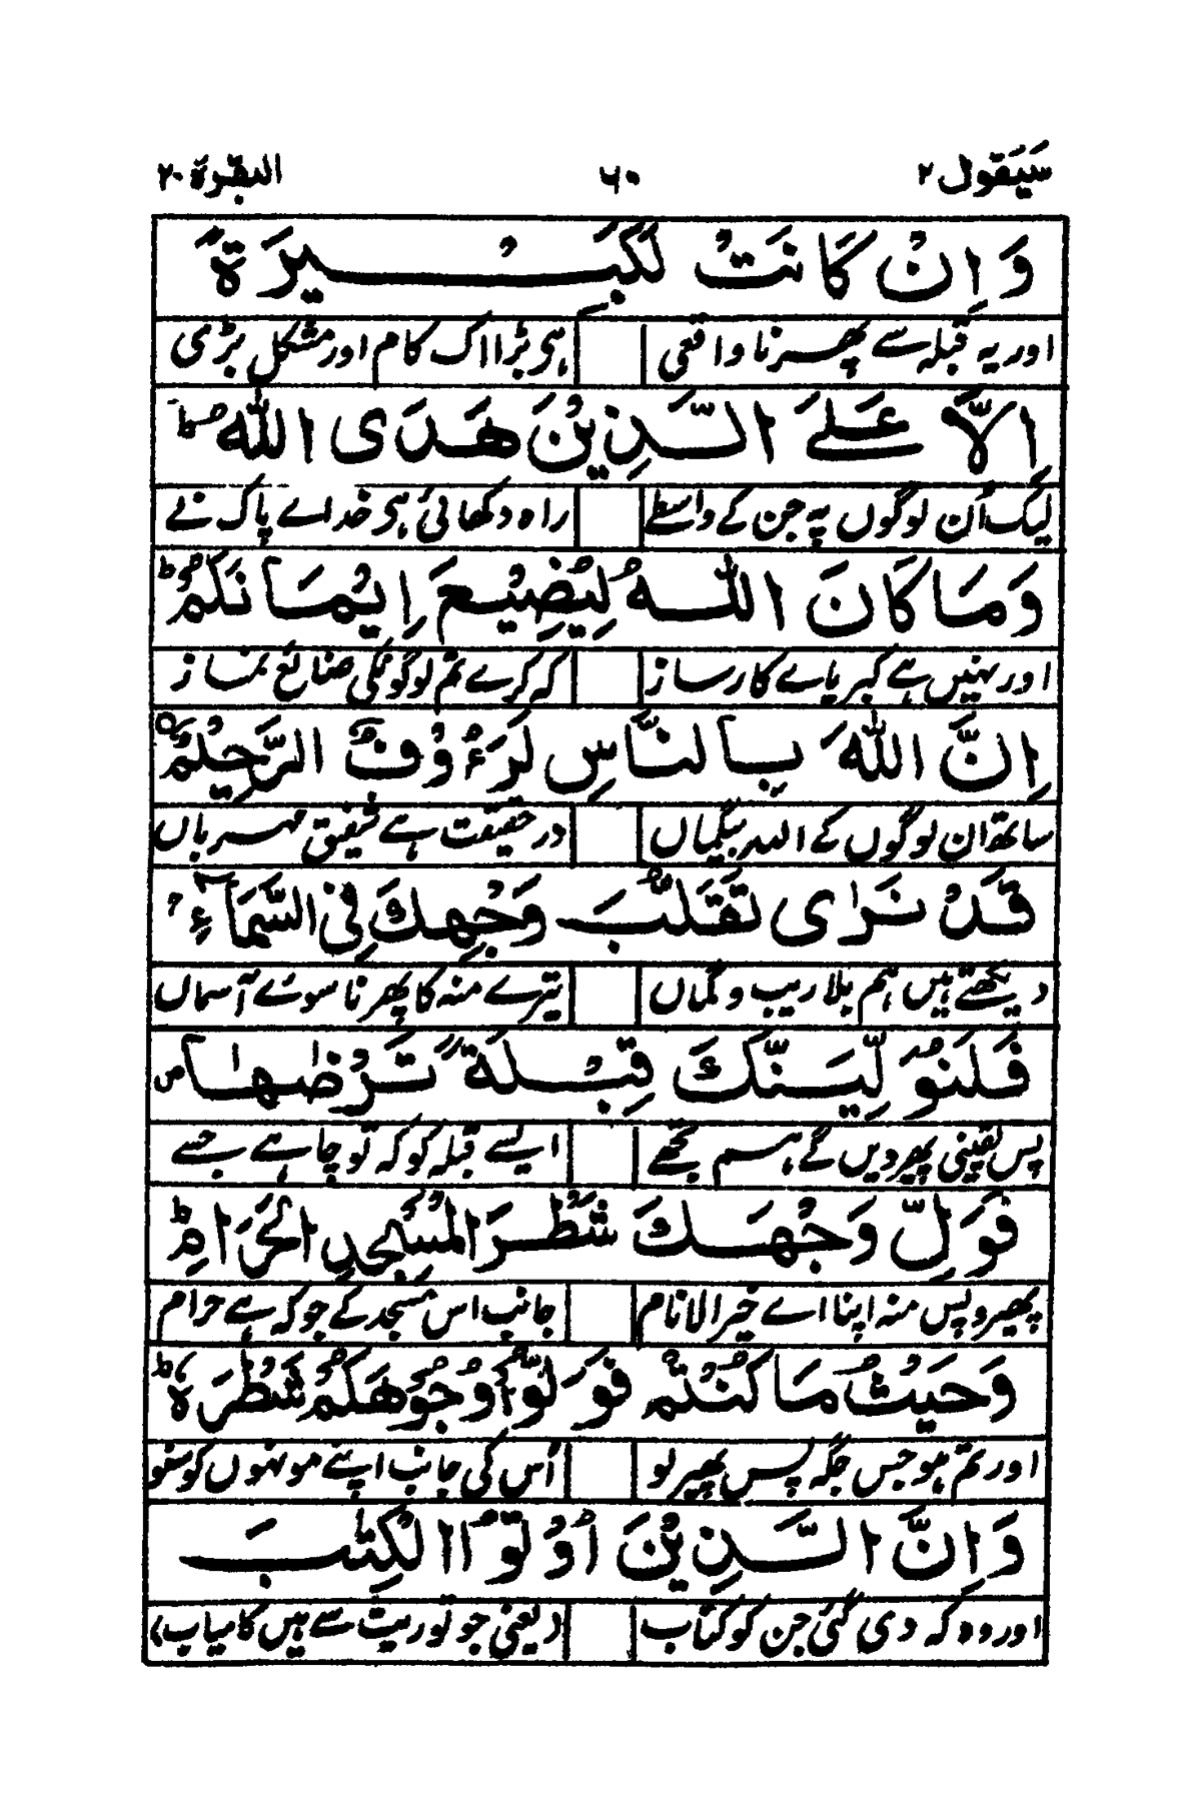 سَيَقُول ٢ ٦٠ البقرة ٢٠
وَاِنْ كَانَتْ لَكَبِيْرَةً
اور یہ قبلہ سے پھرنا واقعی ہی بڑا اک کام اور مشکل بڑی
اِلَّا عَلَے الَّذِيْنَ هَدَى اللّٰهُ
لیک اُن لوگوں پہ جن کے واسطے راہ دکھائی ہی خداے پاک نے
وَمَا كَانَ اللّٰهُ لِيُضِيْعَ اِيْمَانَكُمْ ط
اور نہیں ہے کبریاے کارساز کہ کرے تم لوگونکی ضائع نماز
اِنَّ اللّٰهَ بِالنَّاسِ لَرَءُوْفٌ الرَّحِيْمٌ
ساتھ ان لوگوں کے اللہ بیگماں درحقیقت ہے شفیق مہرباں
قَدْ نَرٰى تَقَلُّبَ وَجْهِكَ فِى السَّمَآءِ
دیکھتے ہیں ہم بلاریب و گماں تیرے منہ کا پھرنا سوئے آسماں
فَلَنُوَلِّيَنَّكَ قِبْلَةً تَرْضٰىهَا ص
پس یقینی پھیر دیں گے ہم تجھے ایسے قبلہ کو کہ تو چاہے جسے
فَوَلِّ وَجْهَكَ شَطْرَ الْمَسْجِدِ الْحَرَامِ ط
پھیر و پس منہ اپنا اے خیر الانام جانب اس مسجد کے جو کہ ہے حرام
وَحَيْثُ مَا كُنْتُمْ فَوَلُّوْا وُجُوْهَكُمْ شَطْرَهٗ ط
اور تم ہو جس جگہ پس پھیر لو اُس کی جانب اپنے مونہوں کو سنو
وَاِنَّ الَّذِيْنَ اُوْتُوْا الْكِتٰبَ
اور وہ کہ دی گئی جن کو کتاب (یعنی جو توریت سے ہیں کامیاب)